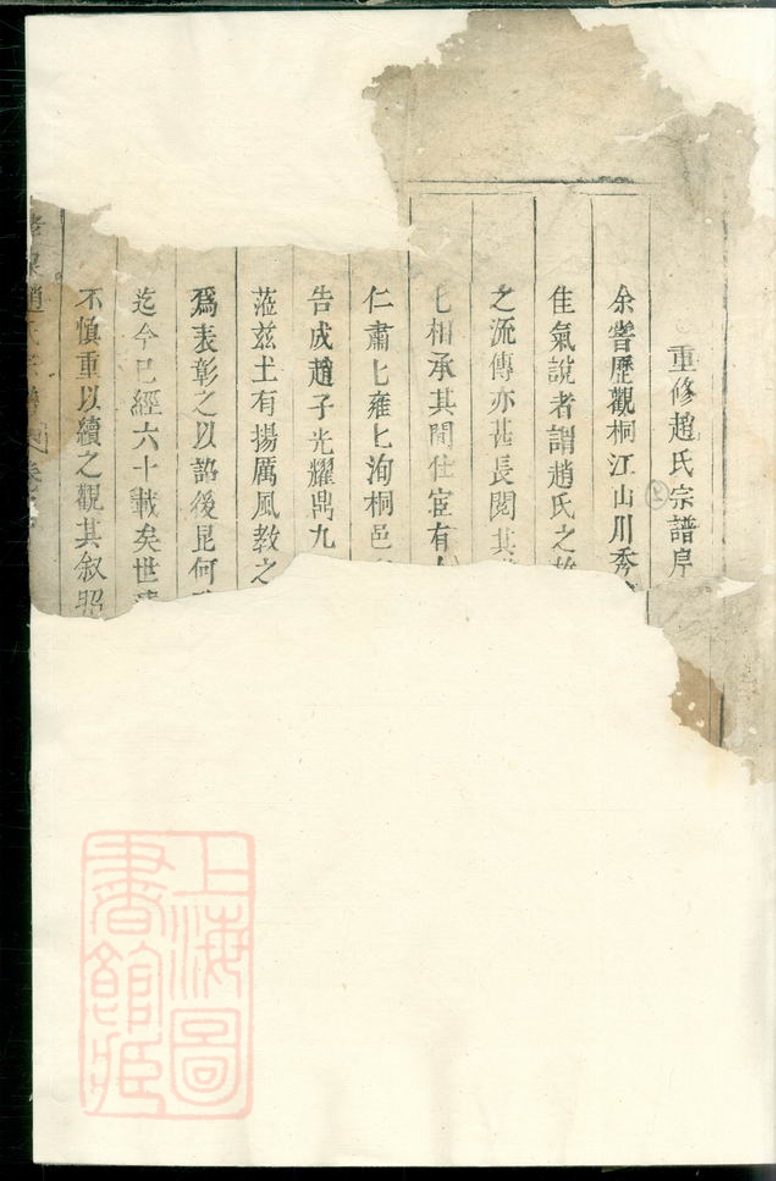 重修趙氏宗譜序
余嘗歷觀桐江山川秀
佳氣說者謂趙氏之
之流傳亦甚長閱其
匕相承其間仕宦有
仁肅匕雍匕洵桐邑
告成趙子光耀鼎九
蒞兹土有揚厲風教之
爲表彰之以詔後昆何
迄今已經六十載矣世
不慎重以續之觀其叙昭
趙氏宗譜
上海圖
書館藏